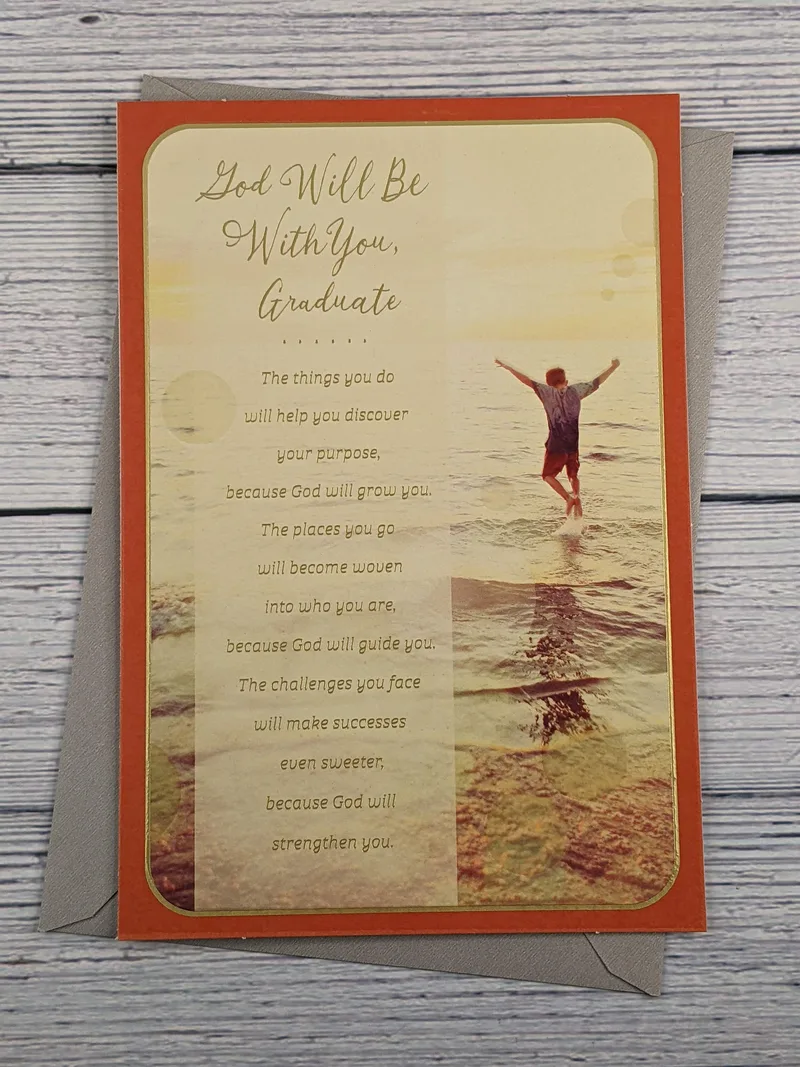 God Will Be
With You,
Graduate
The things you do
will help you discover
your purpose,
because God will grow you.
The places you go
will become woven
into who you are,
because God will guide you.
The challenges you face
will make successes
even sweeter,
because God will
strengthen you.